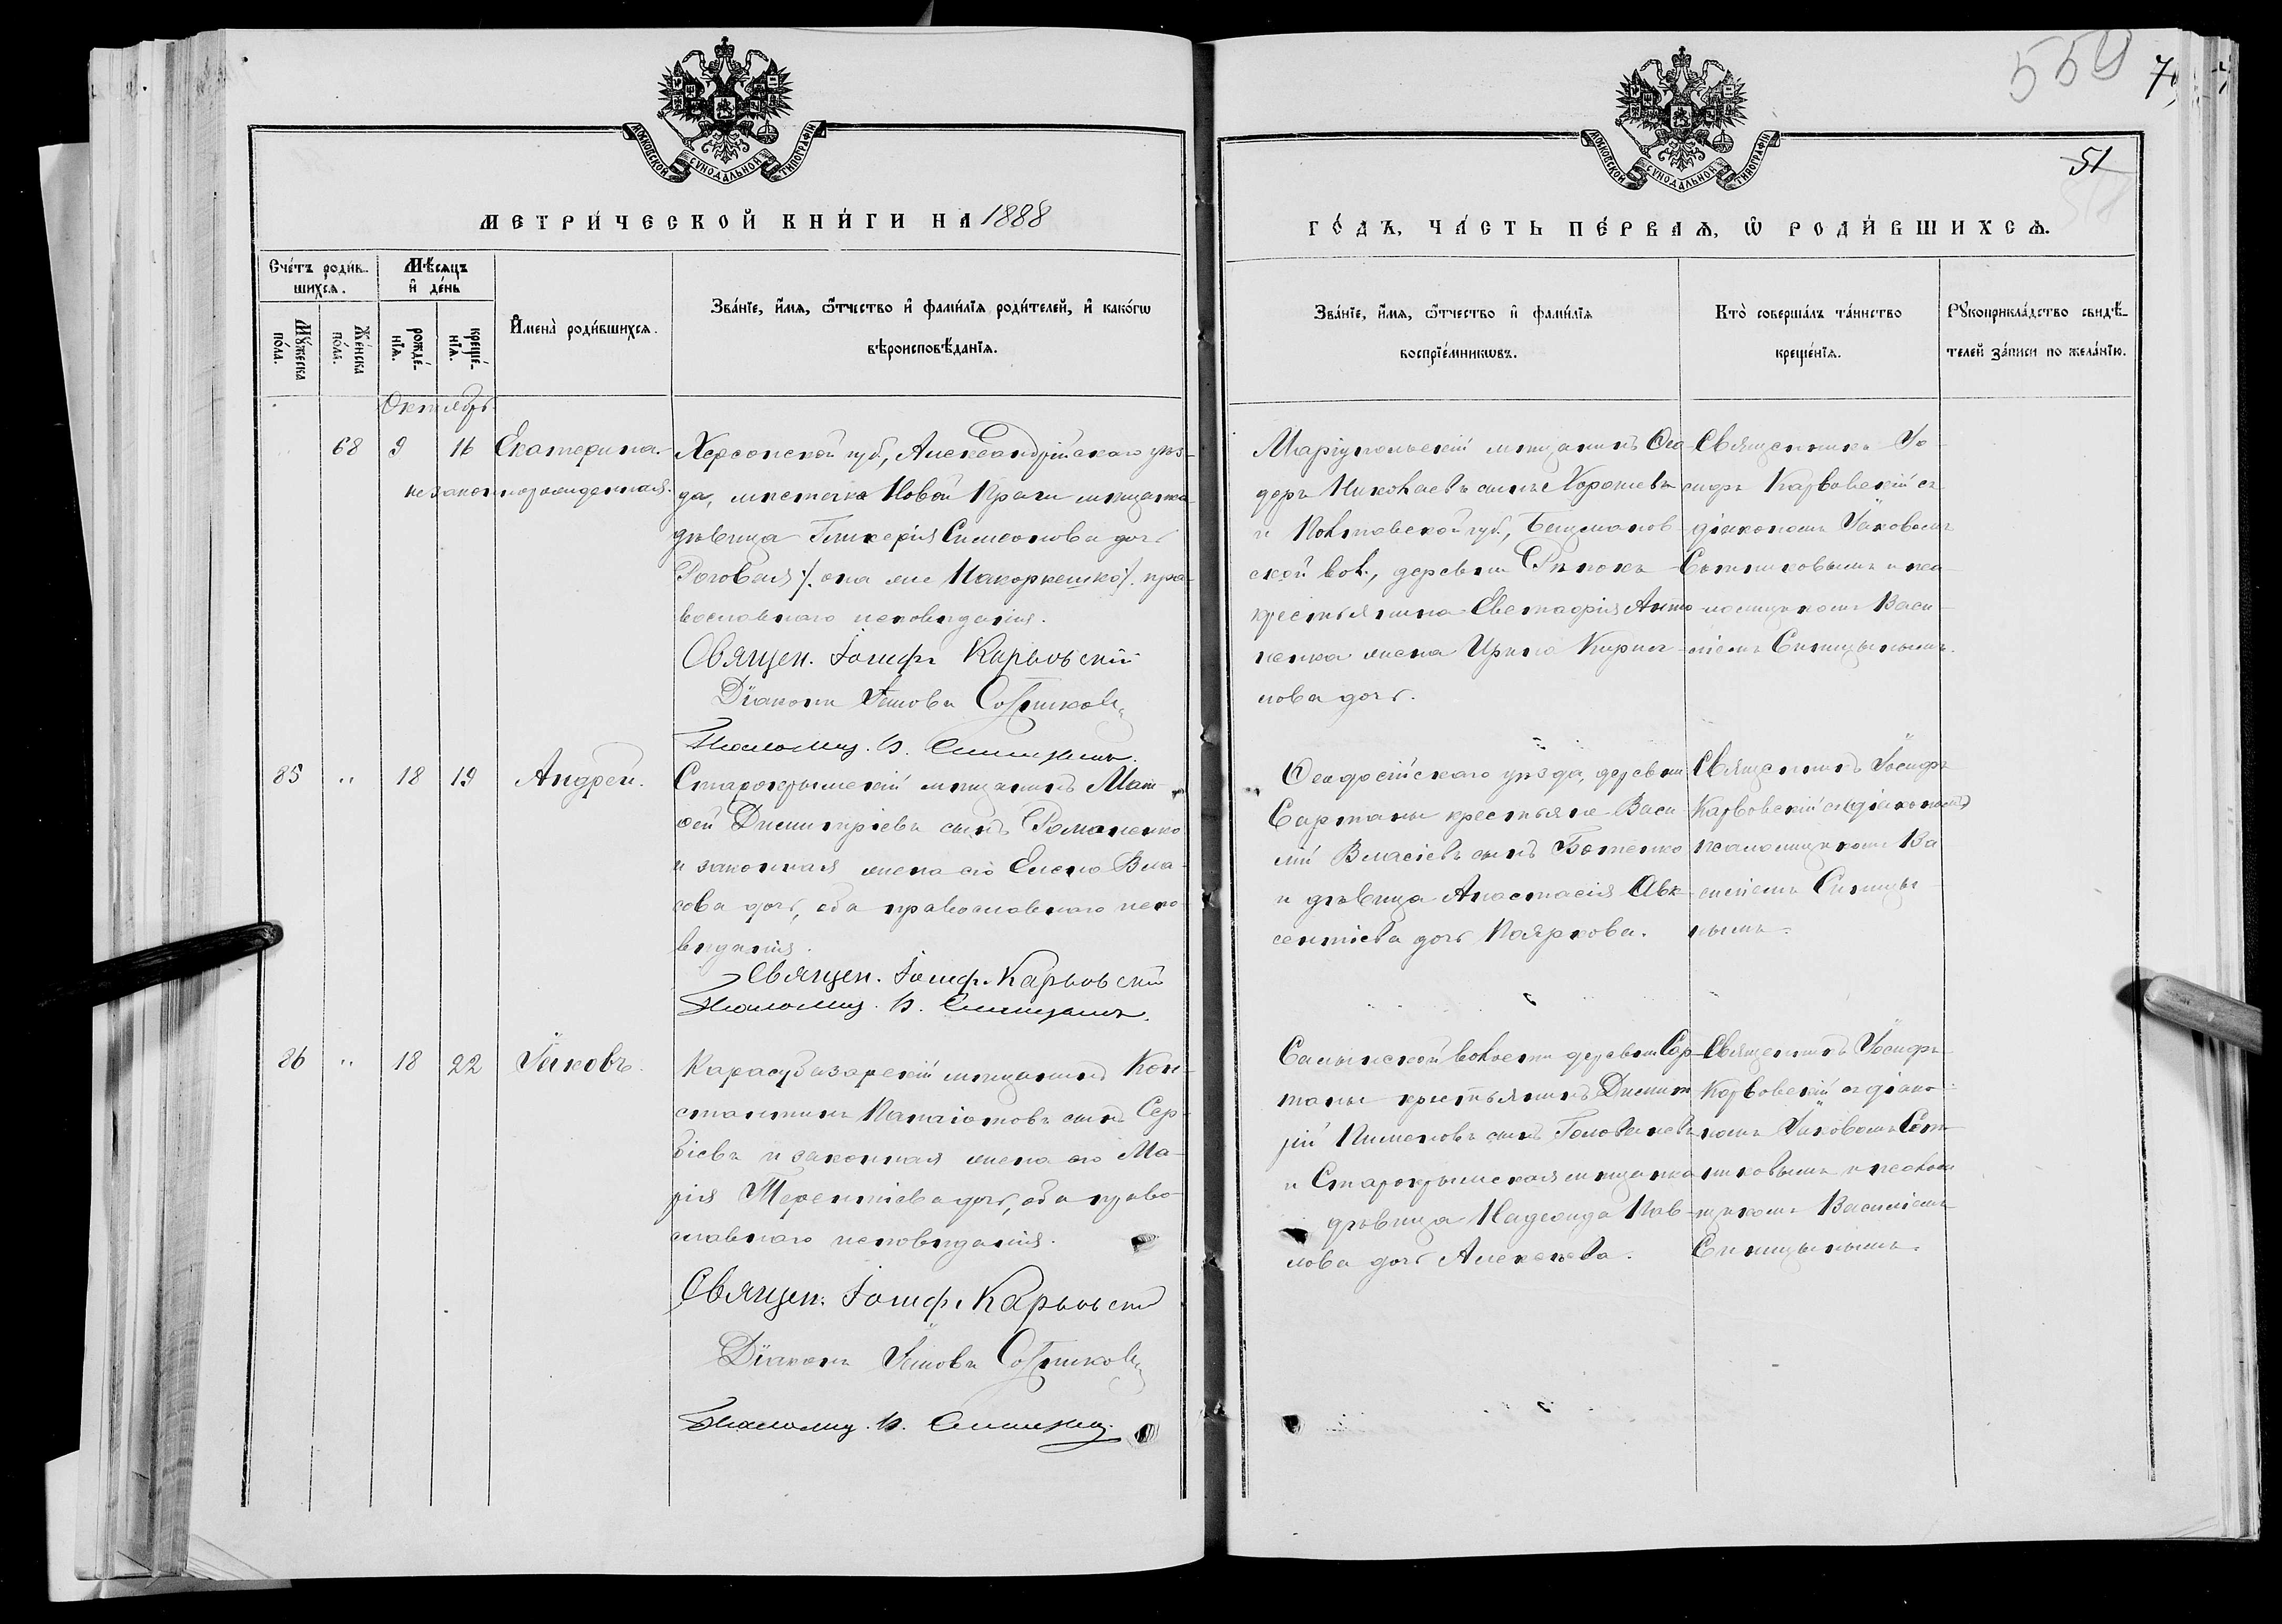 559
7
МОСКОВСКОЙ СѴНОДАЛЬНОЙ ТИПОГРАФІИ
МЕТРИ́ЧЕСКОЙ КНИ́ГИ НА 1888
Сче́тъ роди́в-
шихсѧ.
Мꙋ́жеска
по́ла.
Же́нска
по́ла.
Мѣ́сѧцъ
и҆ де́нь
рожде́-
нїѧ.
креще́-
нїѧ.
И҆мена̀ роди́вшихсѧ.
Зва́нїе, и҆́мѧ, ѻ҆́тчество и҆ фами́лїѧ роди́телей, и҆ како́гѡ
вѣроисповѣ́данїѧ.
Октябрь
68 9 16 Екатерина.
незаконнорожденная.
Херсонской губ., Александрійскаго уѣз-
да, мѣстечка Новой Праги мѣщанка
дѣвица Гликерія Симеонова дочь
Роговая /. она же Накоркешко /. пра-
вославнаго исповѣданія.
Священ. Іосифъ Карьовскій
Діаконъ Іаковъ Сотниковъ
Псаломщ. В. Синицынъ.
85 " 18 19 Андрей.
Старокрымскій мѣщанинъ Мат-
ѳей Димитріевъ сынъ Романенко
и законная жена его Елена Вла-
сова дочь, оба православнаго испо-
вѣданія.
Священ. Іосиф. Карьовскій
Псаломщ. В. Синицынъ.
86 " 18 22 Іаковъ.
Карасубазарскій мѣщанинъ Кон-
стантинъ Панаіотовъ сынъ Сер-
біевъ и законная жена его Ма-
рія Терентіева дочь, оба право-
славнаго исповѣданія.
Священ. Іосиф. Карьовскій
Діаконъ Іаковъ Сотниковъ
Псаломщ. В. Синицын.
МОСКОВСКОЙ СѴНОДАЛЬНОЙ ТИПОГРАФІИ
51
ГО́ДЪ, ЧА́СТЬ ПЕ́РВАѦ, Ѡ҆ РОДИ́ВШИХСѦ.
Зва́нїе, и҆́мѧ, ѻ҆́тчество и҆ фами́лїѧ
воспрїе́мникѡвъ.
Кто̀ соверша́лъ та́инство
креще́нїѧ.
Рꙋкоприкла́дство свидѣ́-
телей за́писи по жела́нїю.
Маріупольскій мѣщанинъ Ѳео-
доръ Николаевъ сынъ Хорошевъ
и Полтавской губ., Бецманов-
ской вол., деревни Рѣпокъ
крестьянина Евстафія Анто-
ненка жена Ирина Кирил-
лова дочь.
Священникъ Іо-
сифъ Карвовскій съ
діакономъ Іаковомъ
Сотниковымъ и пса-
ломщикомъ Васи-
ліемъ Синицынымъ.
Ѳеодосійскаго уѣзда, деревни
Сартаны крестьяне Васи-
лій Власіевъ сынъБотенко
и дѣвица Анастасія Авк-
сентіева дочь Пояркова.
Священникъ Іосифъ
Карвовскій съ
псаломщикомъ Ва-
силіемъ Синицы-
нымъ.
Салынской волости деревни Сар-
таны крестьянинъ Димит-
рій Пименовъ сынъ Головачевъ
и Старокрымская мѣщанка
дѣвица Надежда Пав-
лова дочь Алексѣева.
Священникъ Іосифъ
Карвовскій съ діако-
номъ Іаковомъ Сот-
никовымъ и псалом-
щикомъ Василіемъ
Синицынымъ.